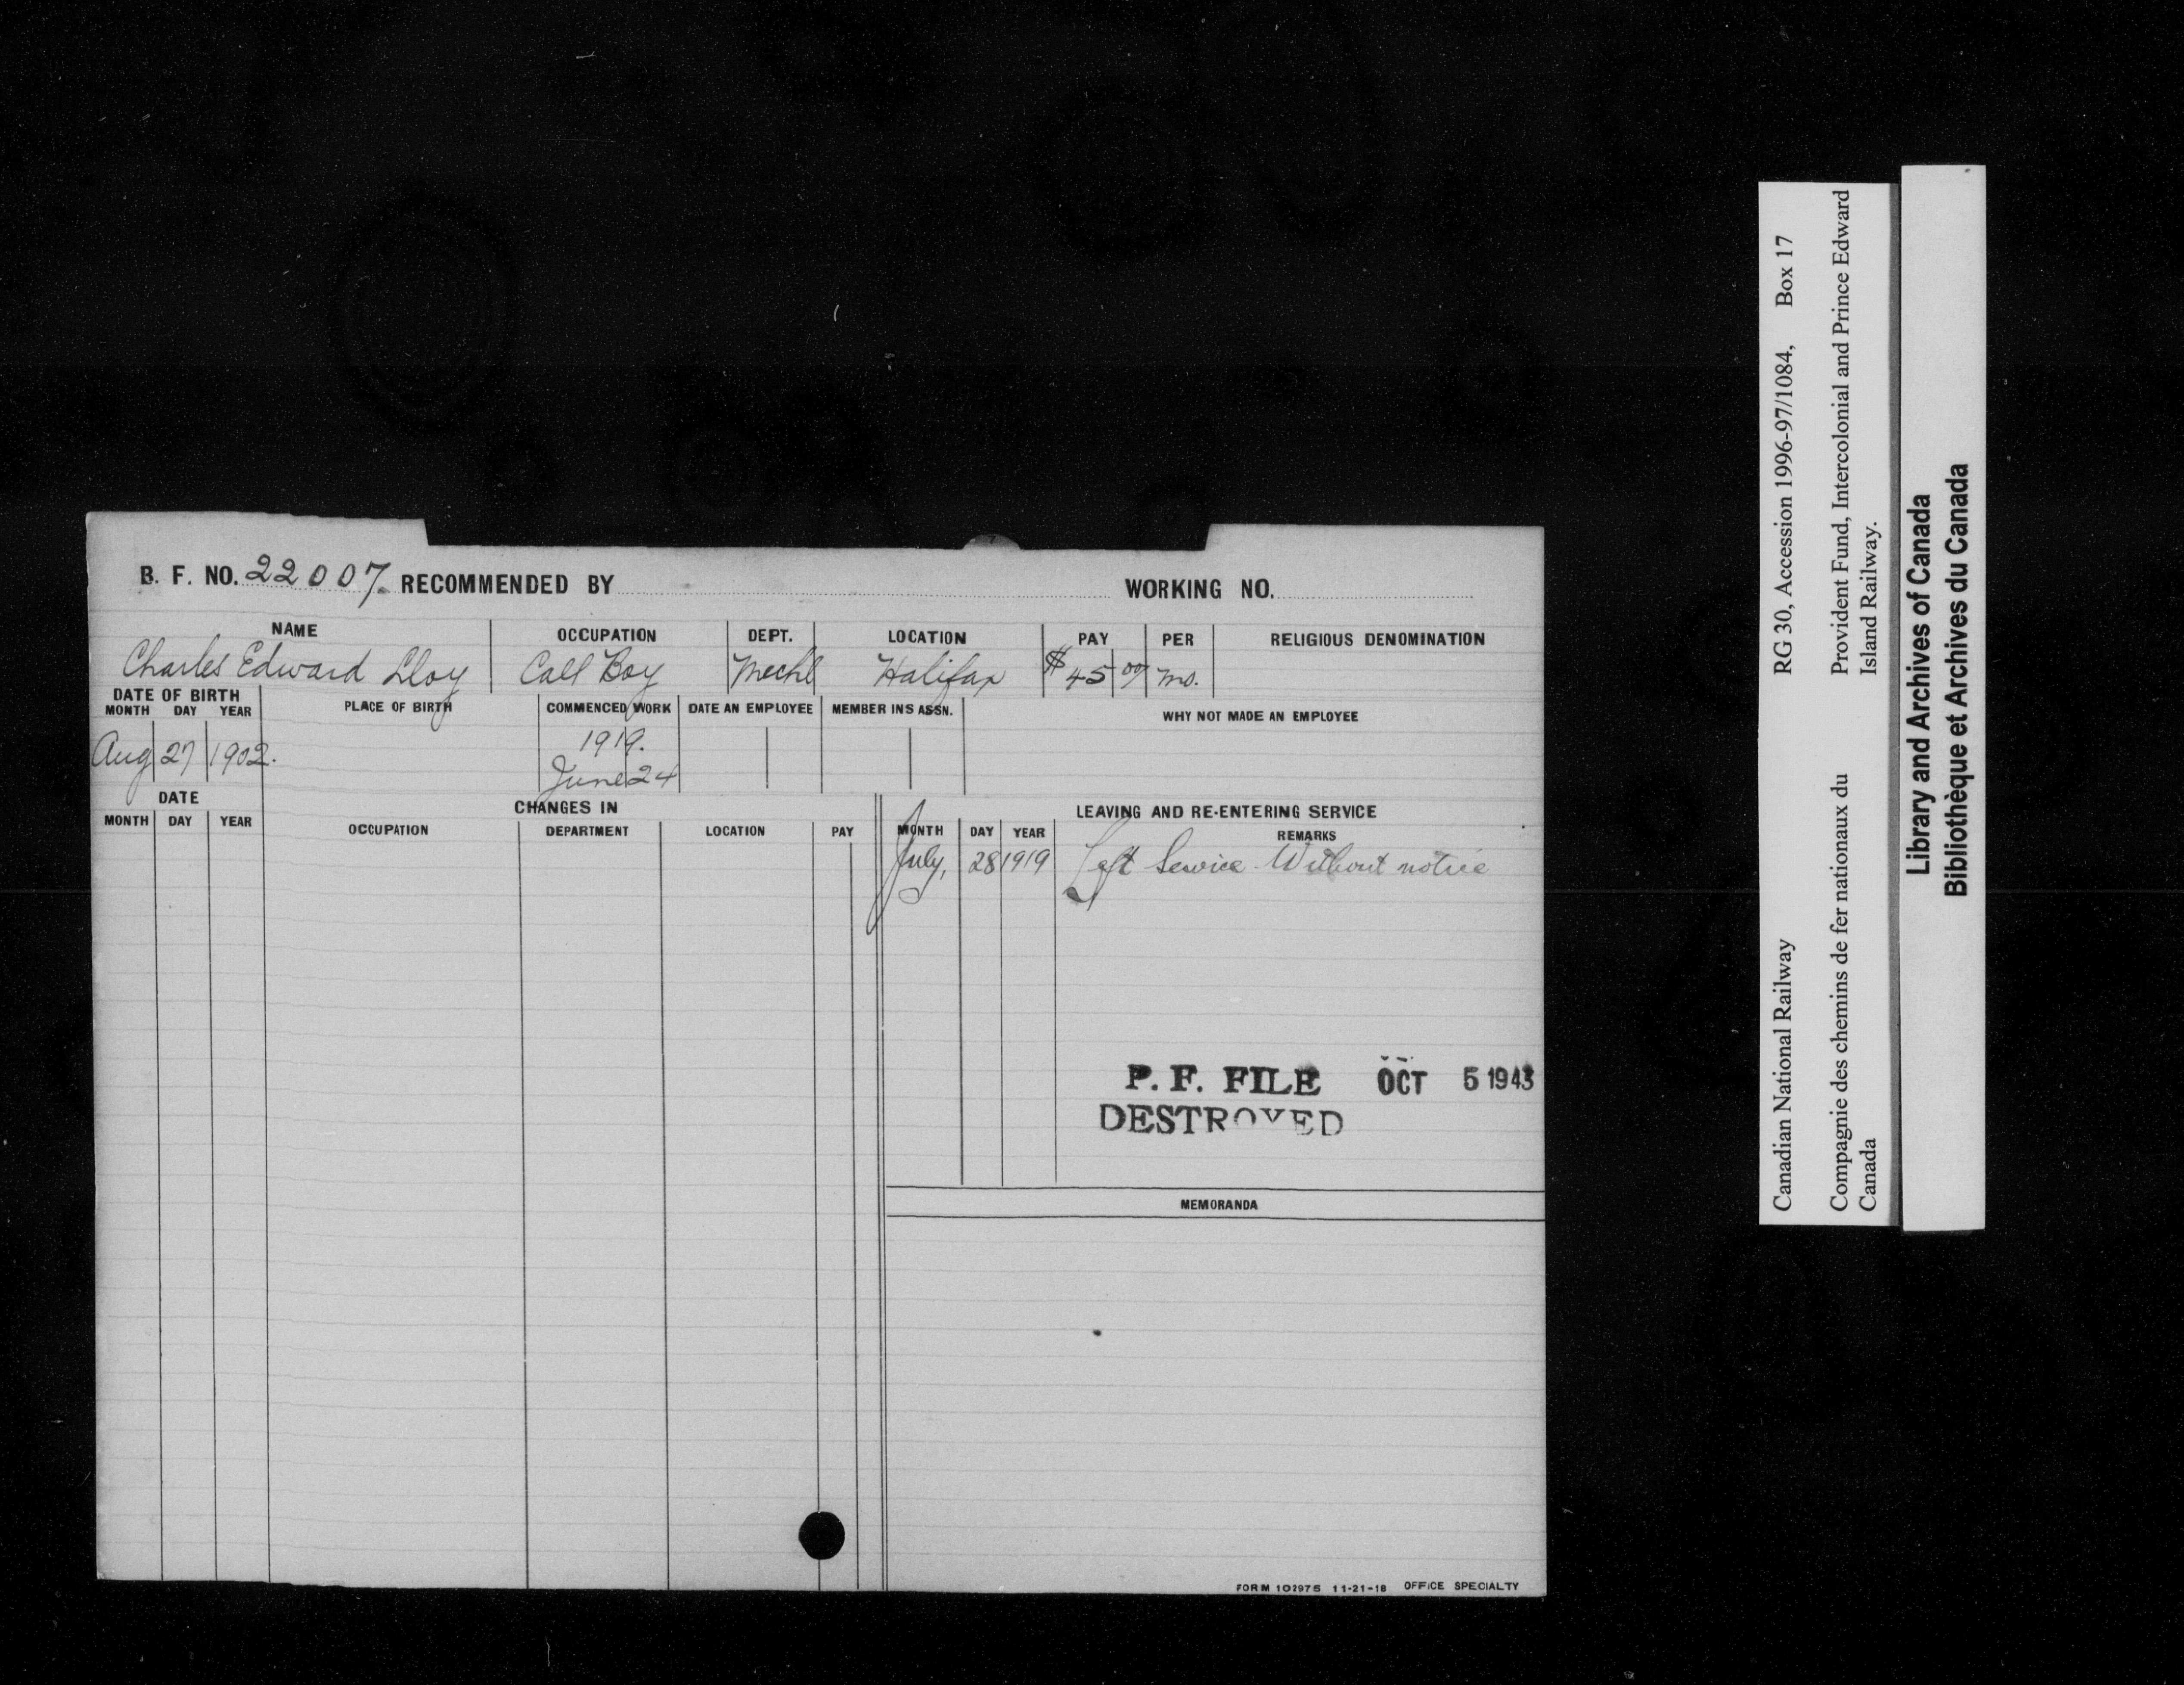 B. F. NO. 22007. RECOMMENDED BY WORKING NO.
NAME OCCUPATION DEPT. LOCATION PAY PER RELIGIOUS DENOMINATION
Charles Edward Lloy Call Boy Mechl Halifax $45 00 mo.
DATE OF BIRTH PLACE OF BIRTH COMMENCED WORK DATE AN EMPLOYEE MEMBER INS ASSN. WHY NOT MADE AN EMPLOYEE
MONTH DAY YEAR
1919.
Aug 27 1902.
June 24
DATE CHANGES IN LEAVING AND RE-ENTERING SERVICE
MONTH DAY YEAR OCCUPATION DEPARTMENT LOCATION PAY MONTH DAY YEAR REMARKS
July, 28 1919 Left Service Without notice
P. F. FILE OCT 5 1943
DESTROYED
MEMORANDA
FORM 102975 11-21-18 OFFICE SPECIALTY
Canadian National Railway RG 30, Accession 1996-97/1084, Box 17
Compagnie des chemins de fer nationaux du
Canada
Provident Fund, Intercolonial and Prince Edward
Island Railway.
Library and Archives of Canada
Bibliothèque et Archives du Canada